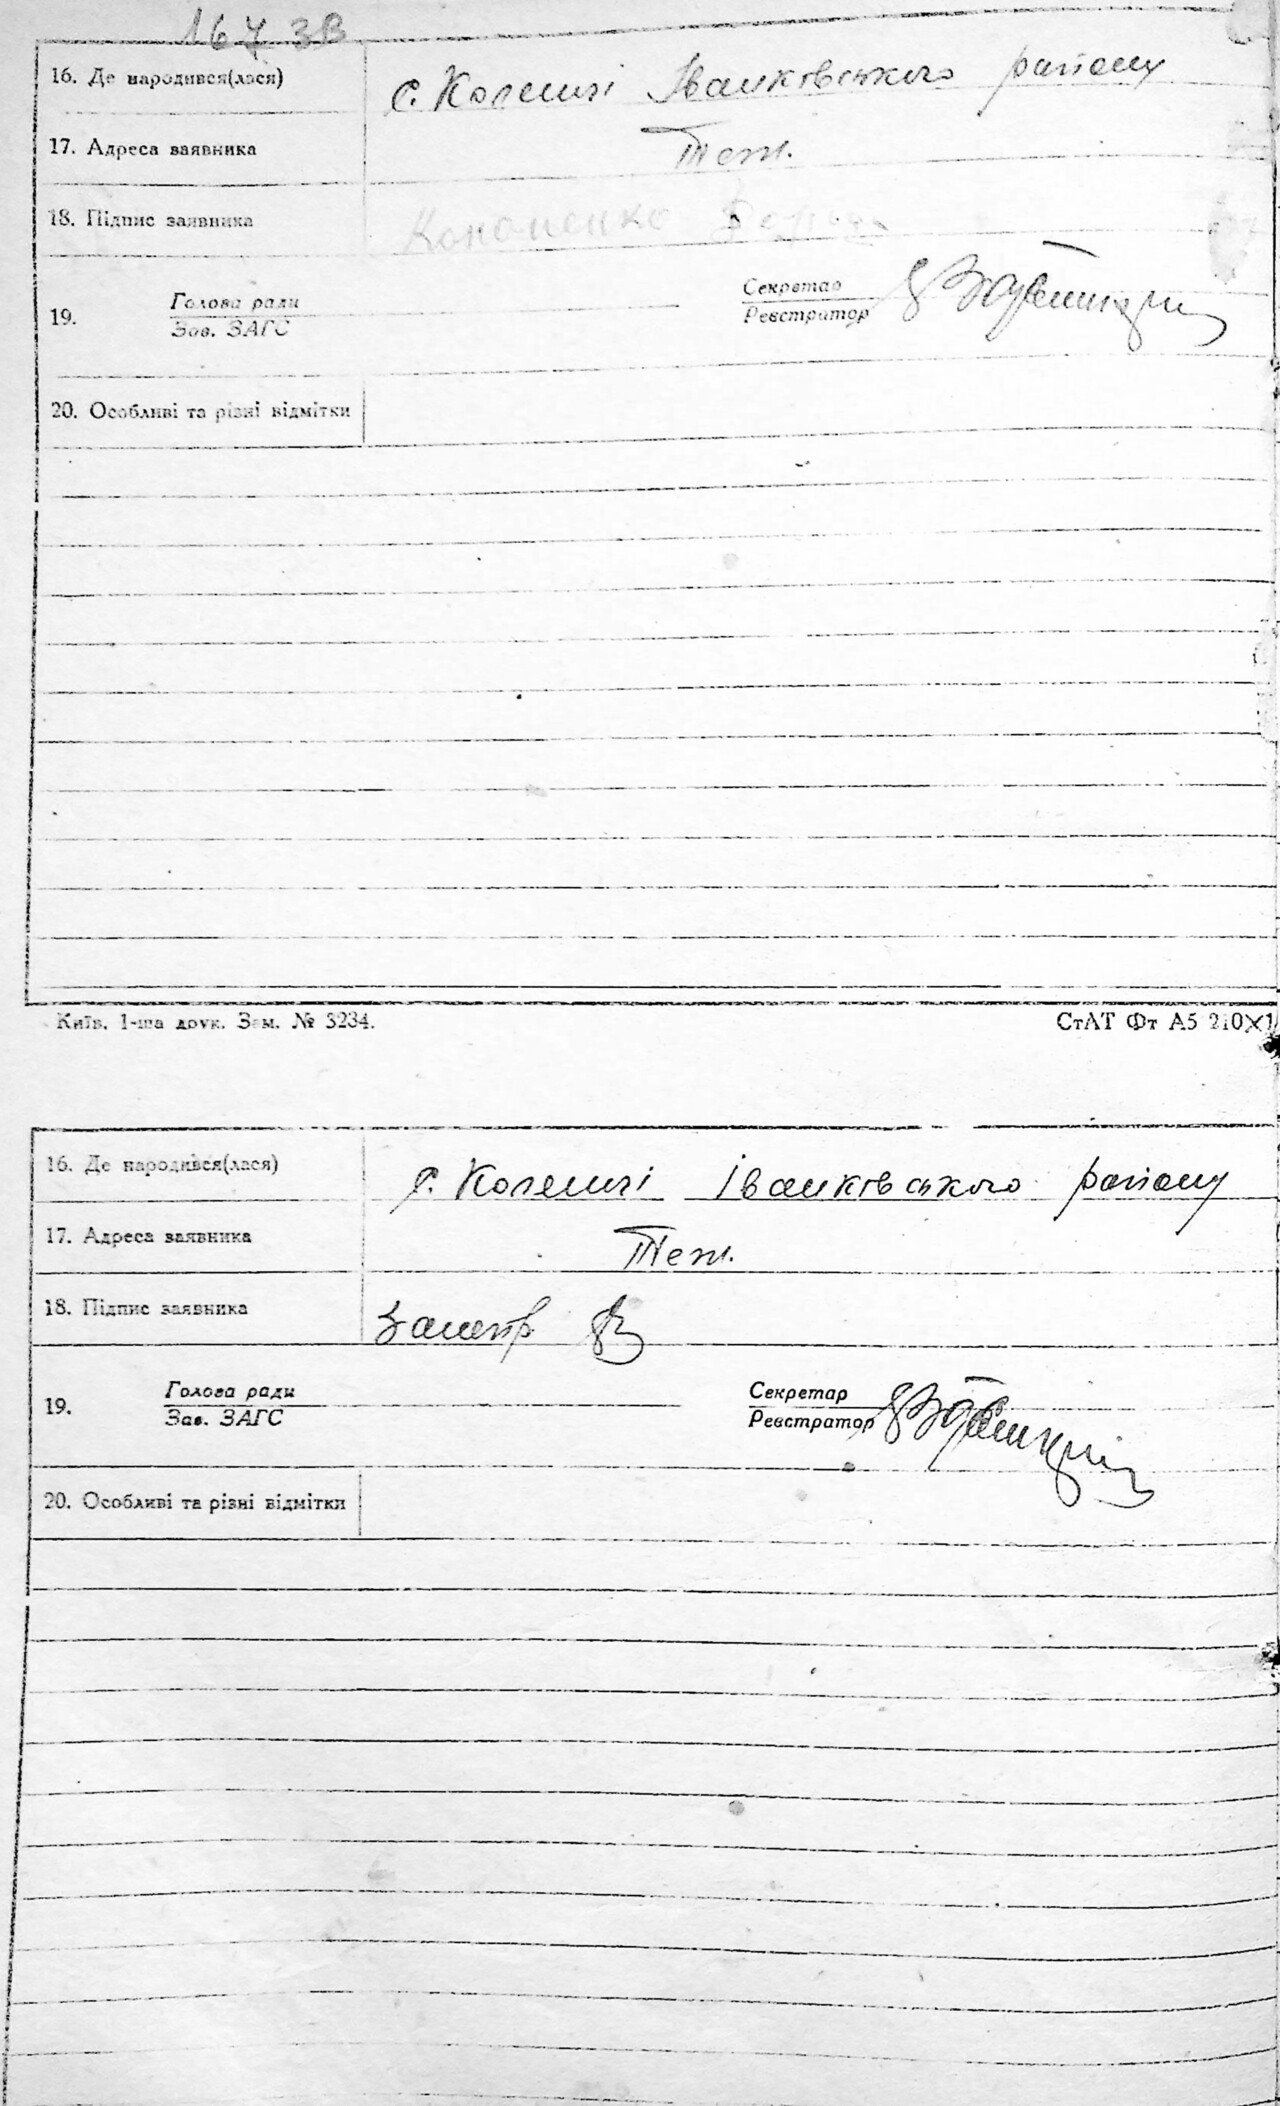 167 зв
16. Де народився(лася) с. Коленці Іванківського району
17. Адреса заявника Теж.
18. Підпис заявника Кононенко
19. Голова ради Секретар
Зав. ЗАГС Реєстратор
20. Особливі та різні відмітки
Київ, 1-ша друк. Зам. № 3234. СтАТ Фт А5 210×1
16. Де народився(лася) с. Коленці Іванківського району
17. Адреса заявника Теж.
18. Підпис заявника
19. Голова ради Секретар
Зав. ЗАГС Реєстратор
20. Особливі та різні відмітки